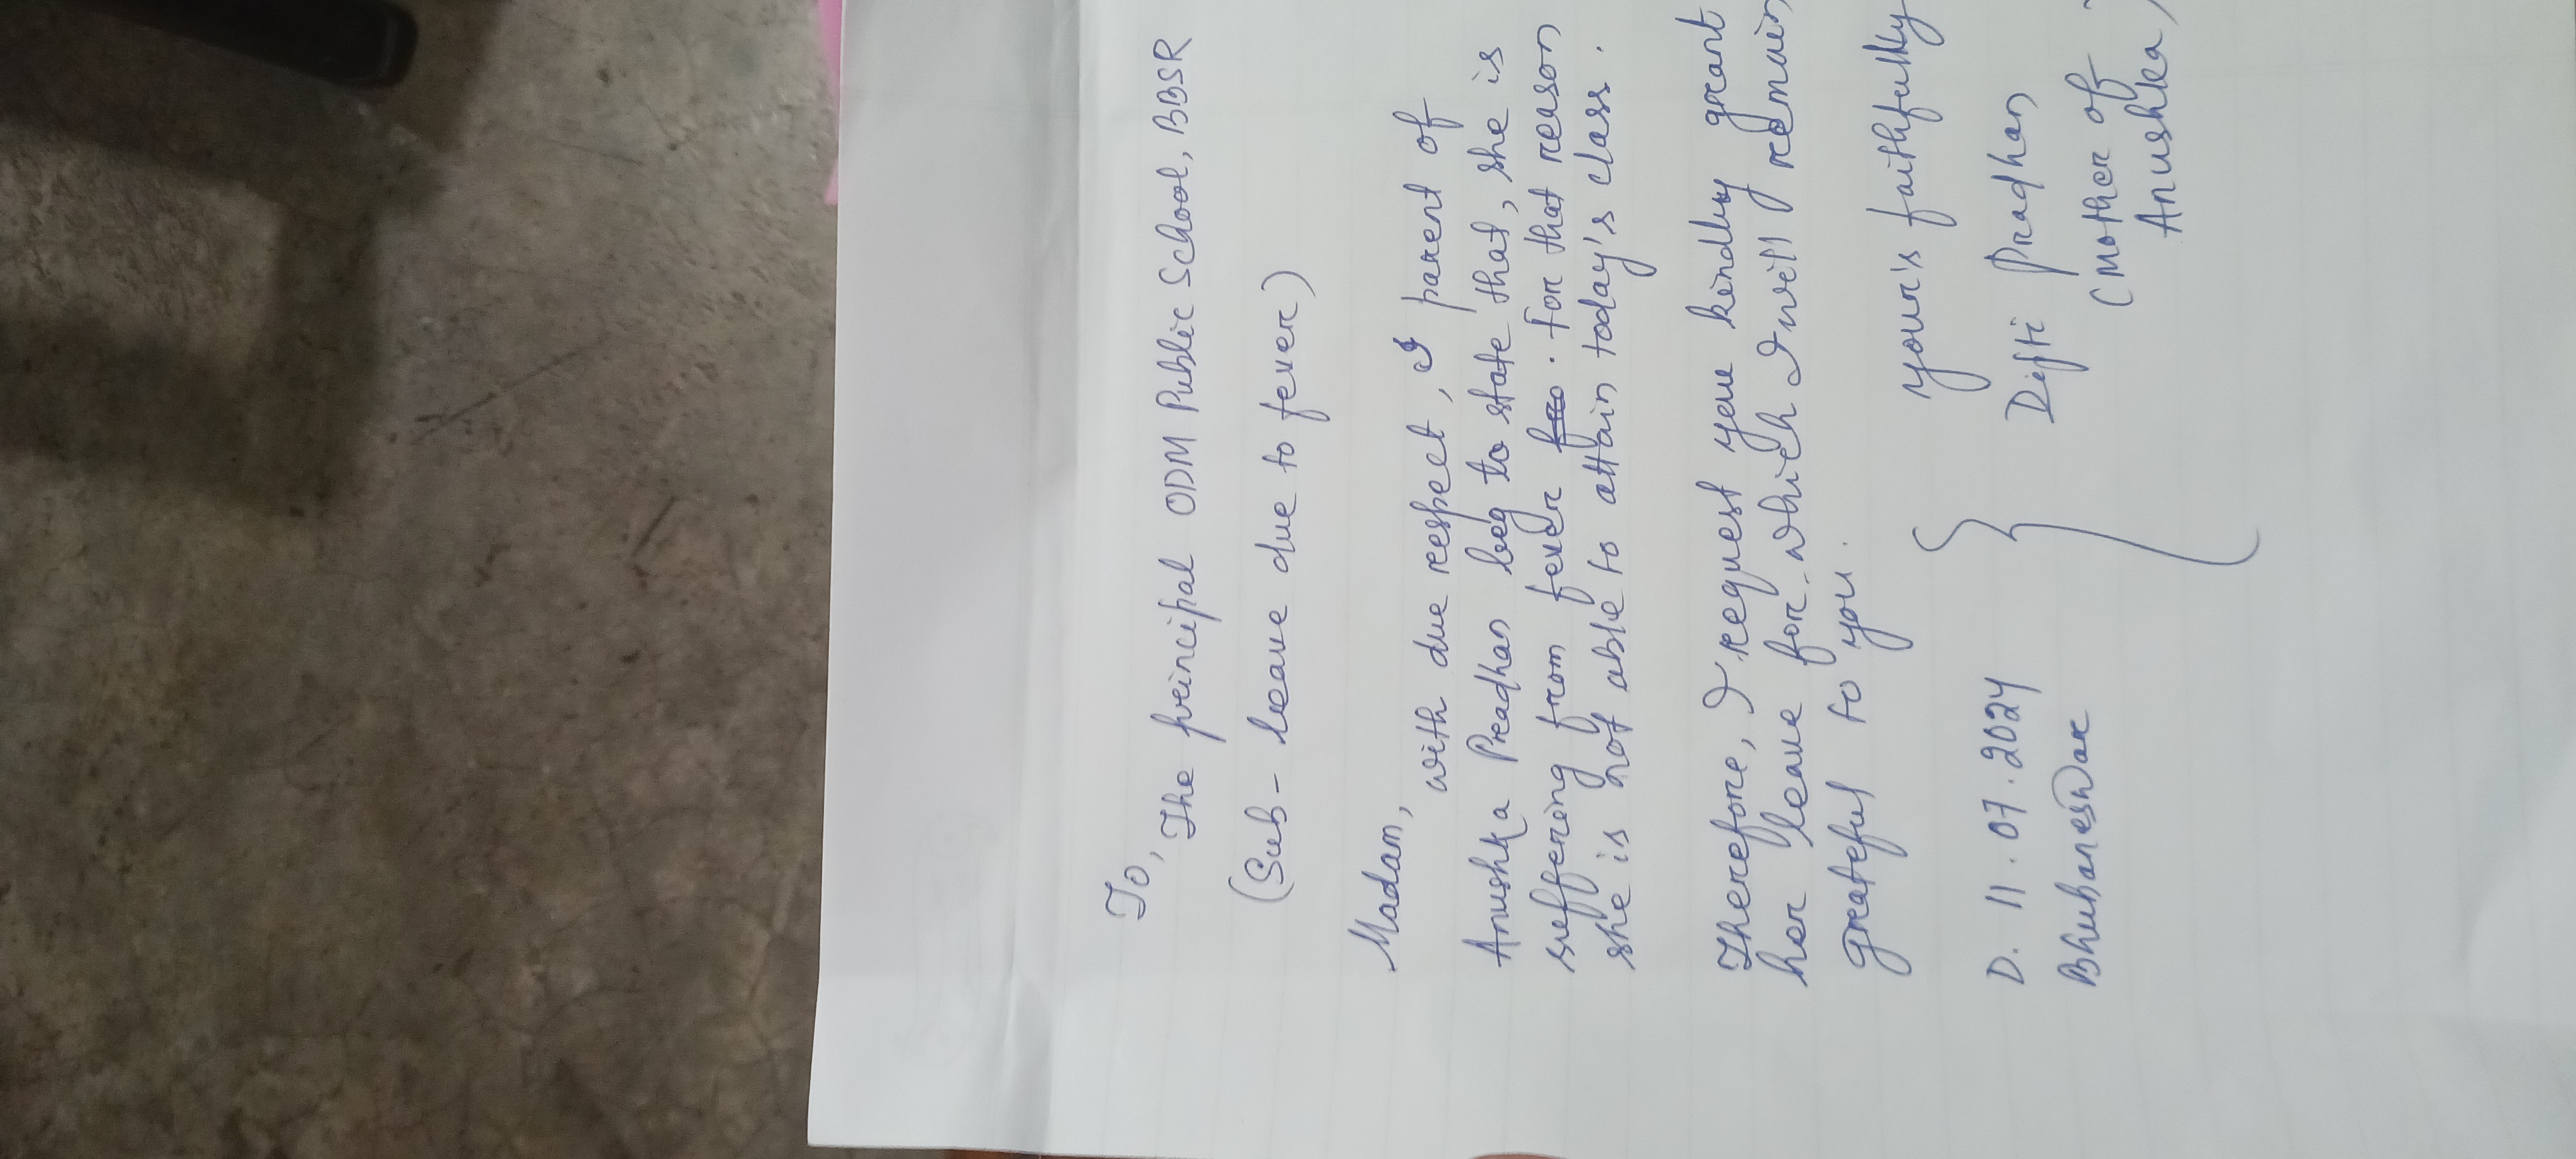 To,
The principal ODM Public School, BBSR
(Sub- leave due to fever)
Madam,
with due respect, I parent of
Anushka Pradhan beg to state that, she is
suffering from fever . for that reason
she is not able to attain today's class.
Therefore, I request you kindly grant
her leave for which I will remain
greateful to you.
your's faithfully
D. 11.07.2024 Dipti Pradhan
Bhubaneswar (Mother of
Anushka)